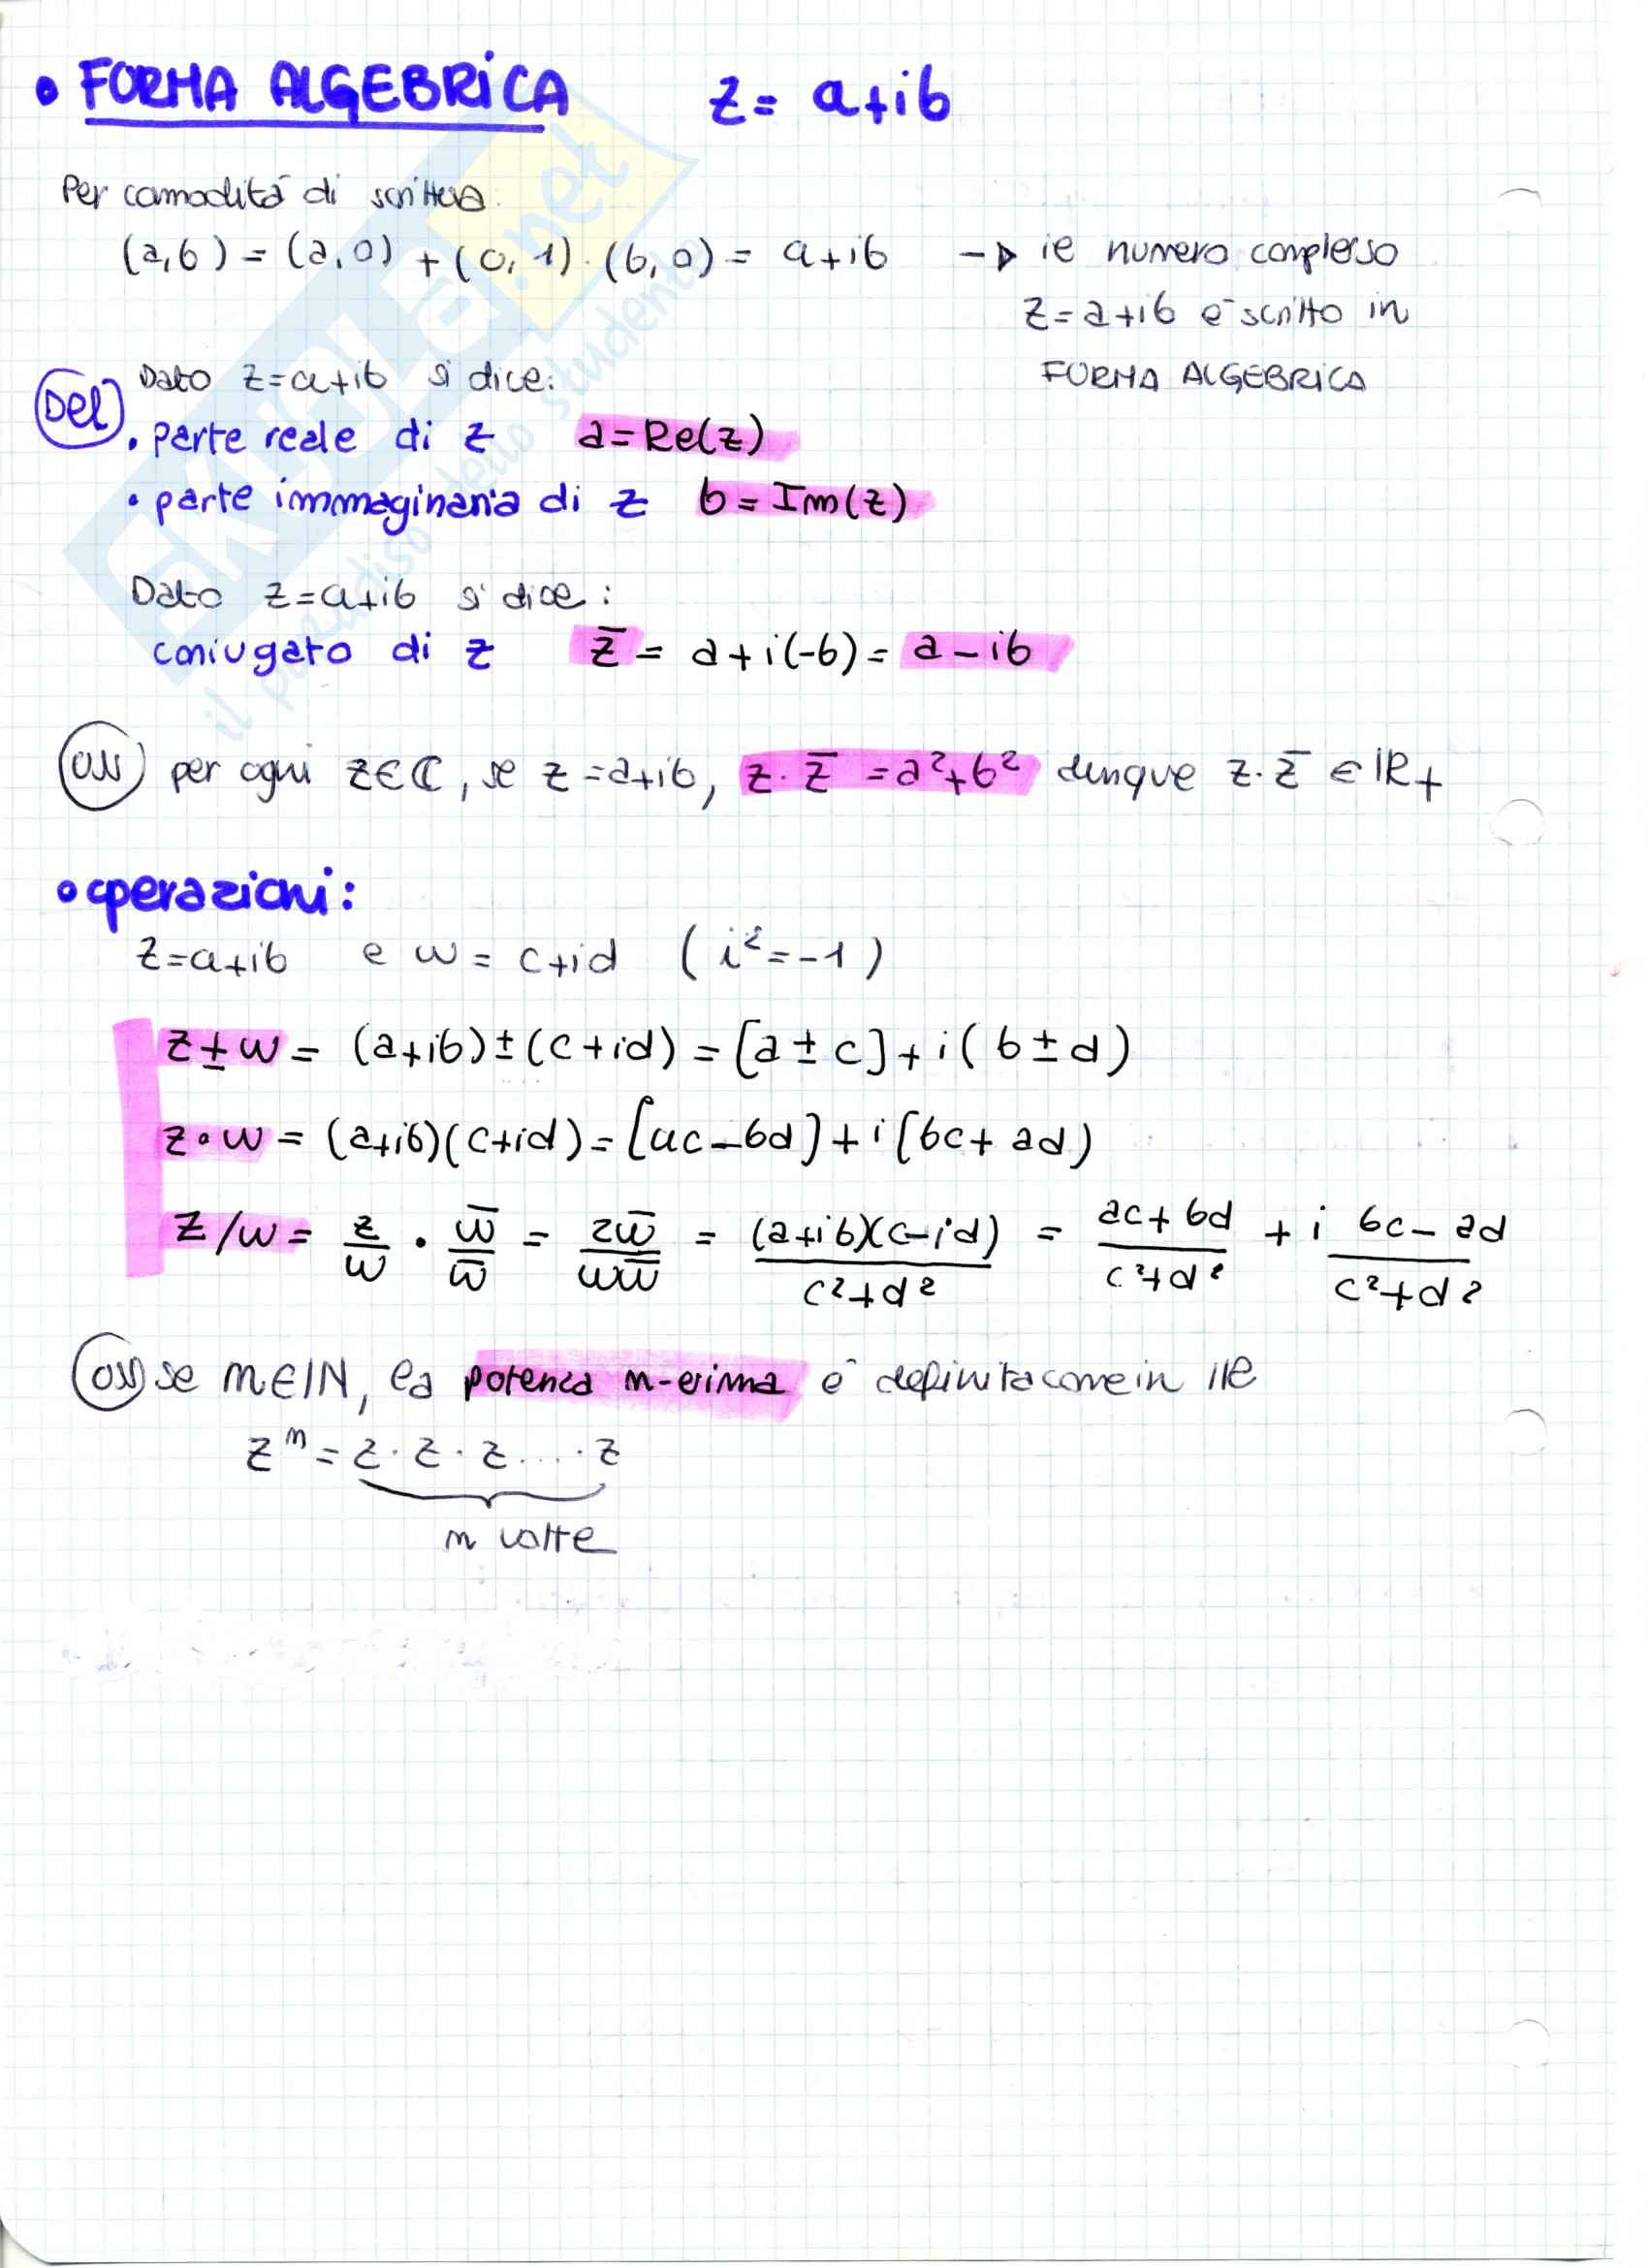 • FORMA ALGEBRICA z = a+ib
Per comodità di scrittura
(a,b) = (a,0) + (0,1) · (b,0) = a+ib → il numero complesso
z=a+ib è scritto in
FORMA ALGEBRICA
Def Dato z=a+ib si dice:
• parte reale di z a=Re(z)
• parte immaginaria di z b=Im(z)
Dato z=a+ib si dice:
coniugato di z z̄ = a+i(-b) = a-ib
OSS per ogni z∈ℂ, se z=a+ib, z·z̄ = a²+b² dunque z·z̄ ∈ ℝ+
• operazioni:
z=a+ib e w = c+id (i²=-1)
z±w = (a+ib)±(c+id) = [a±c]+i(b±d)
z•w = (a+ib)(c+id) = [ac-bd]+i[bc+ad)
z/w = z/w • w̄/w̄ = zw̄/ww̄ = (a+ib)(c-id)/c²+d² = ac+bd/c²+d² + i bc-ad/c²+d²
OSS se n∈ℕ, la potenza n-esima è definita come in ℝ
zⁿ = z·z·z....·z
n volte
SKUOLA.net
il paradiso dello studente